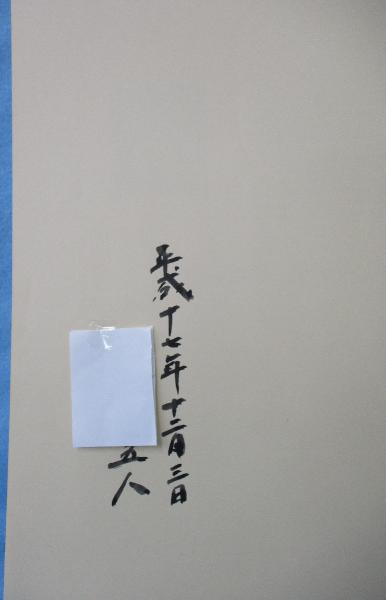 平成十七年十二月三日
五人